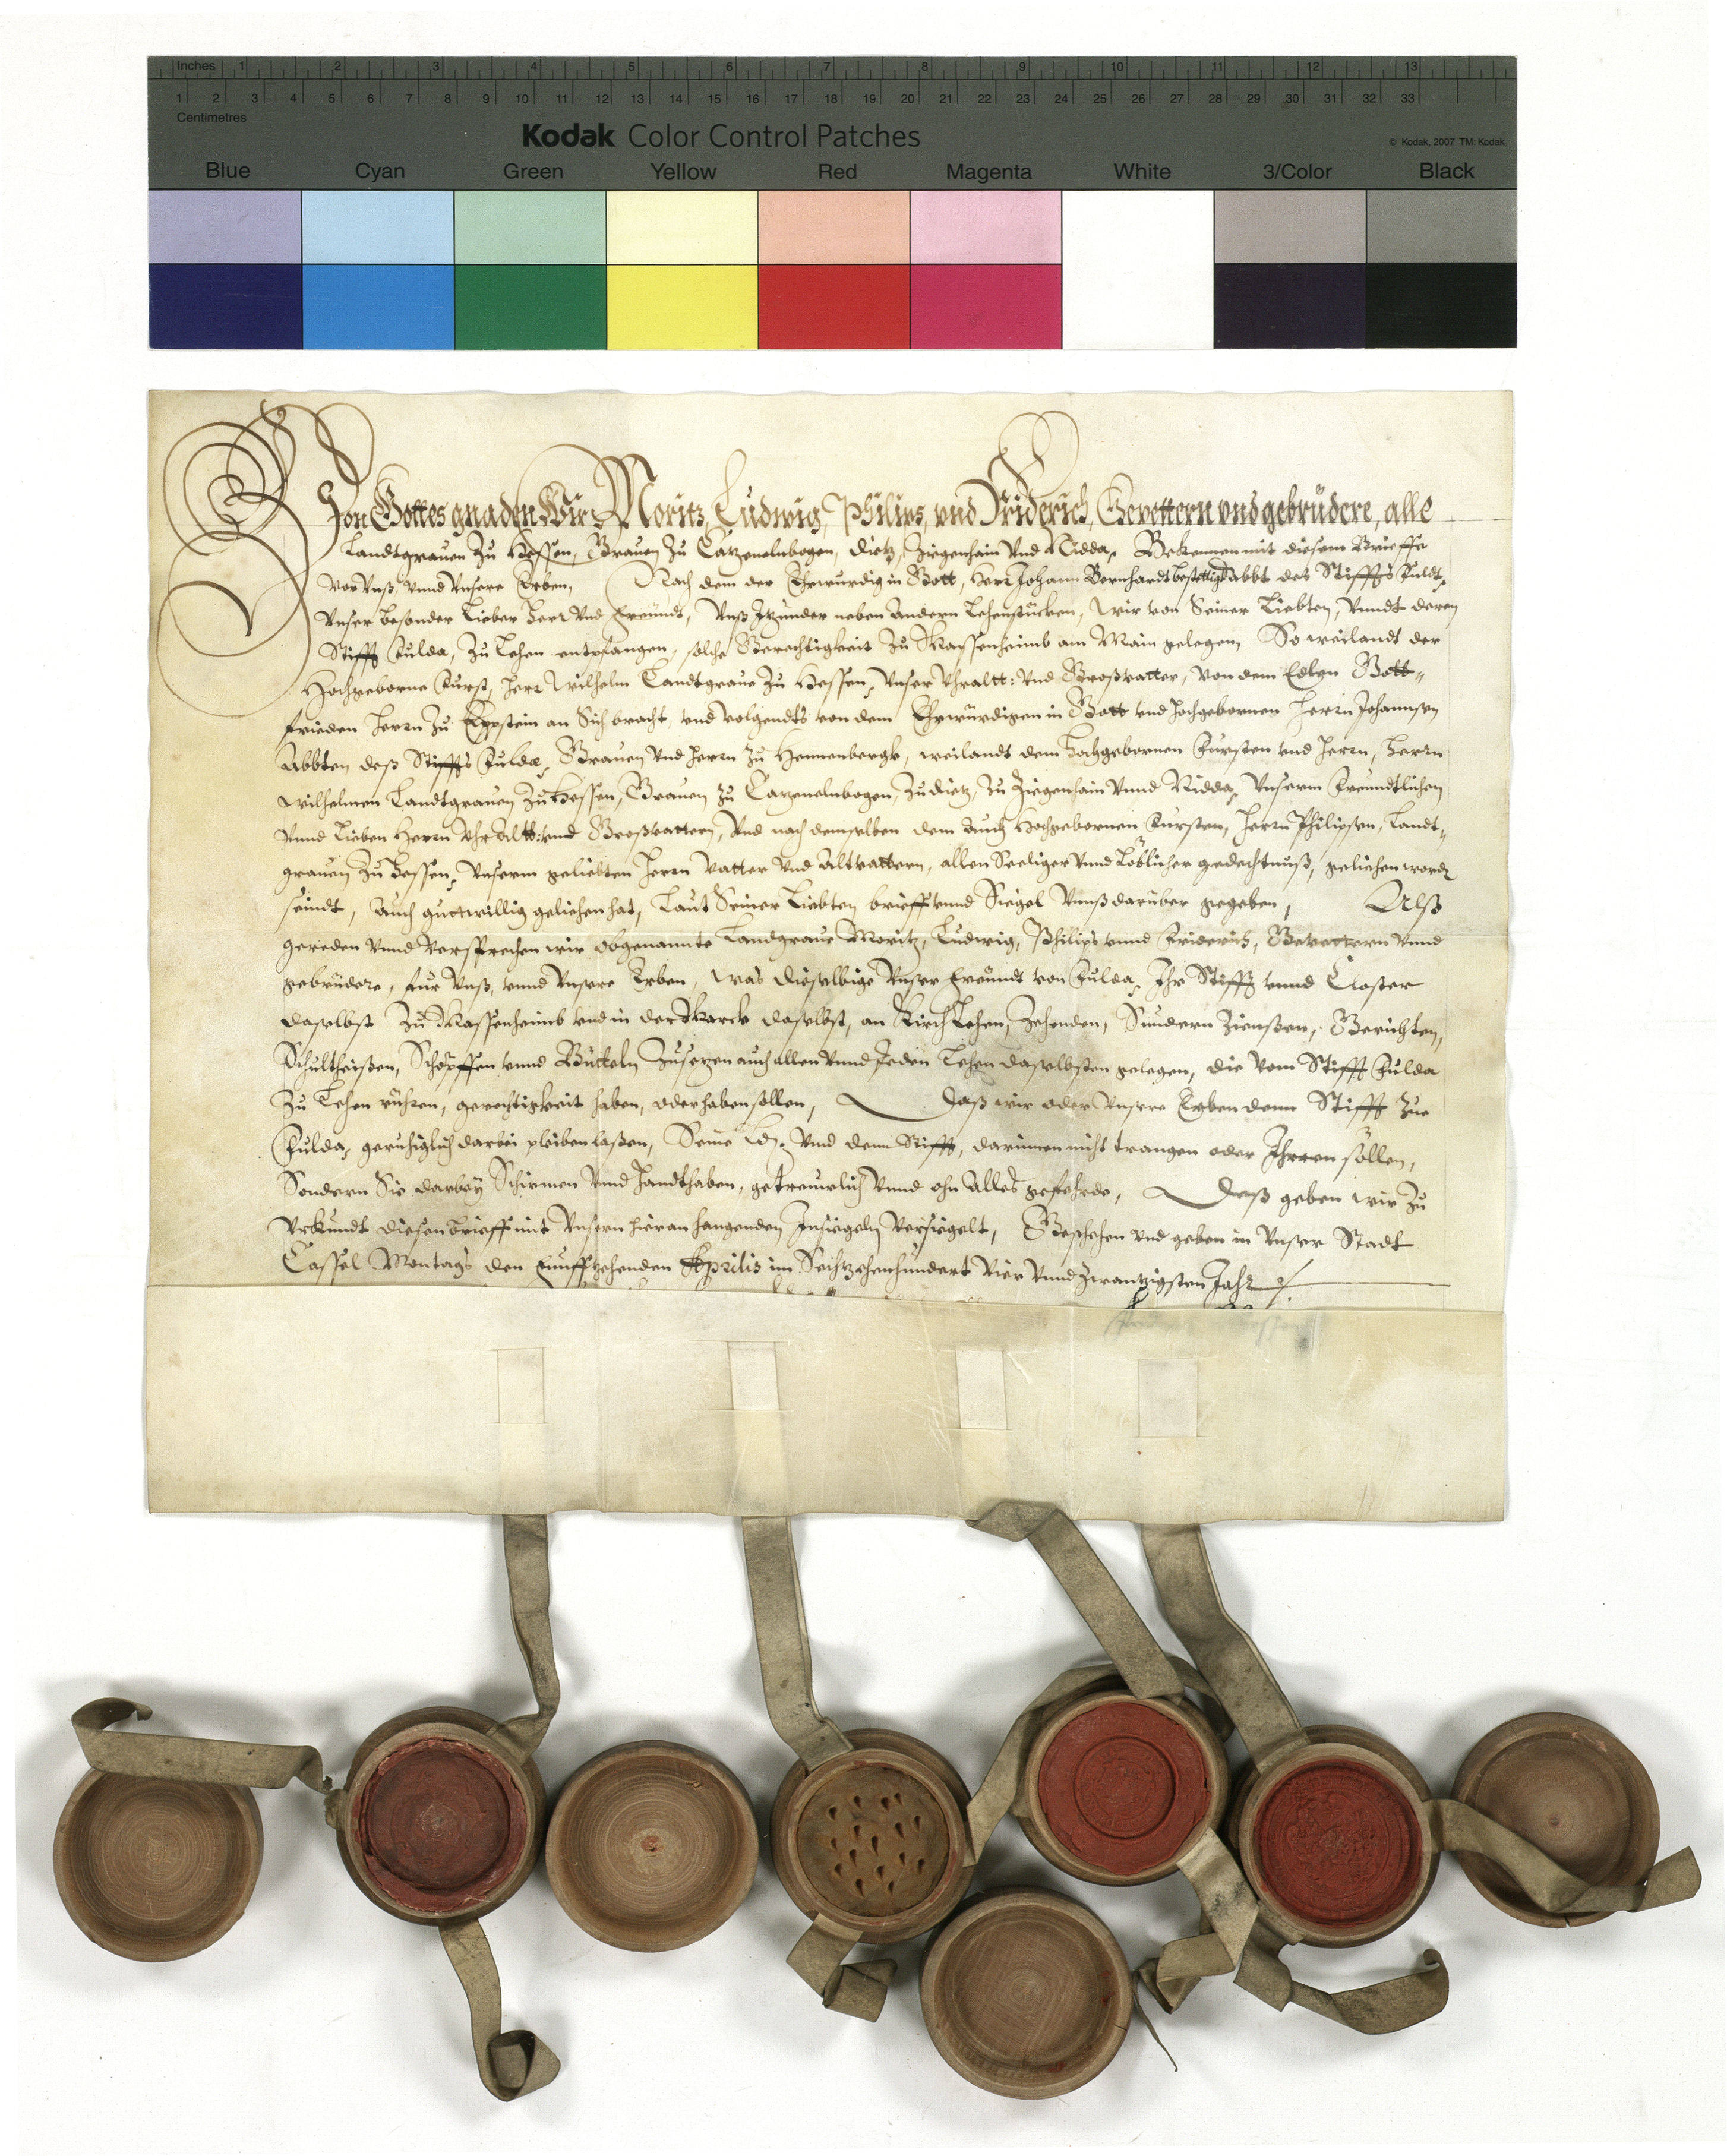 Inches 1 2 3 4 5 6 7 8 9 10 11 12 13
1 2 3 4 5 6 7 8 9 10 11 12 13 14 15 16 17 18 19 20 21 22 23 24 25 26 27 28 29 30 31 32 33
Centimetres
Kodak Color Control Patches
© Kodak, 2007 TM: Kodak
Blue Cyan Green Yellow Red Magenta White 3/Color Black
Von Gottes gnaden Wir Moritz, Ludwig, Philips, und Friderich, Gevettern und gebrüdere, alle
Landtgrauen zu Hessen, Grauen zu Catzenelnbogen, Dietz, Ziegenhain vnd Nidda, Bekennen mit diesem Brieffe
vor vnß vnnd vnsere Erben, Nach dem der Ehrwurdig in Gott, Herr Johann Bernhardt bestettigt Abbt des Stiffts Fuldt,
vnser besonder Lieber Herr vnd Freundt, vnß Itzunder neben andern Lehenstücken, wir von Seiner Liebten, vnndt deren
Stifft Fulda, zu Lehen entpfangen, solche Gerechtigkeit zu Massenheimb am Main gelegen, So weilandt der
Hochgeborne Furst, Herr Wilhelm Landtgraue zu Hessen, vnser Vhraltt: vnd Großvatter, von dem Edlen Gott-
frieden Herrn zu Eppstein an Sich bracht, vnd volgendts von dem Ehrwürdigen in Gott vnd Hochgebornen Herrn Johannsen
Abbten deß Stiffts Fulda, Grauen vnd Herrn zu Hennenbergk, weilandt dem Hochgebornen Fursten vnd Herrn, Herrn
Wilhelmen Landtgrauen zu Hessen, Grauen zu Catzenelnbogen, zu Dietz, zu Ziegenhain vnnd Nidda, vnserm Freundtlichen
vnnd Lieben Herrn VhrAltt: vnd Großvattern, vnd nach demselben dem auch Hochgebornen Fursten, Herrn Philipsen, Landt-
grauen zu Hessen, vnserm geliebten Herrn Vatter vnd Altvattern, allen Seeliger vnnd Löblicher gedechtnuß, geliehen word
seindt, auch guttwillig geliehen hat, Laut Seiner Liebten brieff vnnd Siegel vnnß darüber gegeben, Alß
gereden vnnd versprechen wir obgenannte Landgraue Moritz, Ludwig, Philips vnnd Friderich, Gevettern vnnd
gebrüdere, fur vnß, vnnd vnsere Erben, was dieselbige vnser Freundt von Fulda, Ihr Stifft vnnd Closter
daselbst zu Massenheimb vnd in der Marck daselbst, an Kirchlehen, Zehenden, Sundern Zienßen, Gerichten,
Schultheißen, Schöpffen vnnd Bütteln zusetzen auch allen vnnd Jeden Lehen daselbsten gelegen, die vom Stifft Fulda
zu Lehen rühren, gerechtigkeit haben, oder haben sollen, daß wir oder vnsere Erben denn Stifft zue
Fulda, geruhiglich darbei pleiben laßen, Seine Ld. vnd dem Stifft, darinnen nicht trangen oder Ihrren sollen,
Sondern Sie darbey Schirmen vnnd handthaben, getreuwlich vnnd ohn Alles gefehrde, Deß geben wir zu
Vrkundt diesen brieff mit vnsern hieran hangenden Insiegeln versiegelt, Geschehen vnd geben in vnser Stadt
Cassel Montags den Funffzehenden Aprilis im Sechtzehenhundert vier vnnd zwantzigsten Jahr